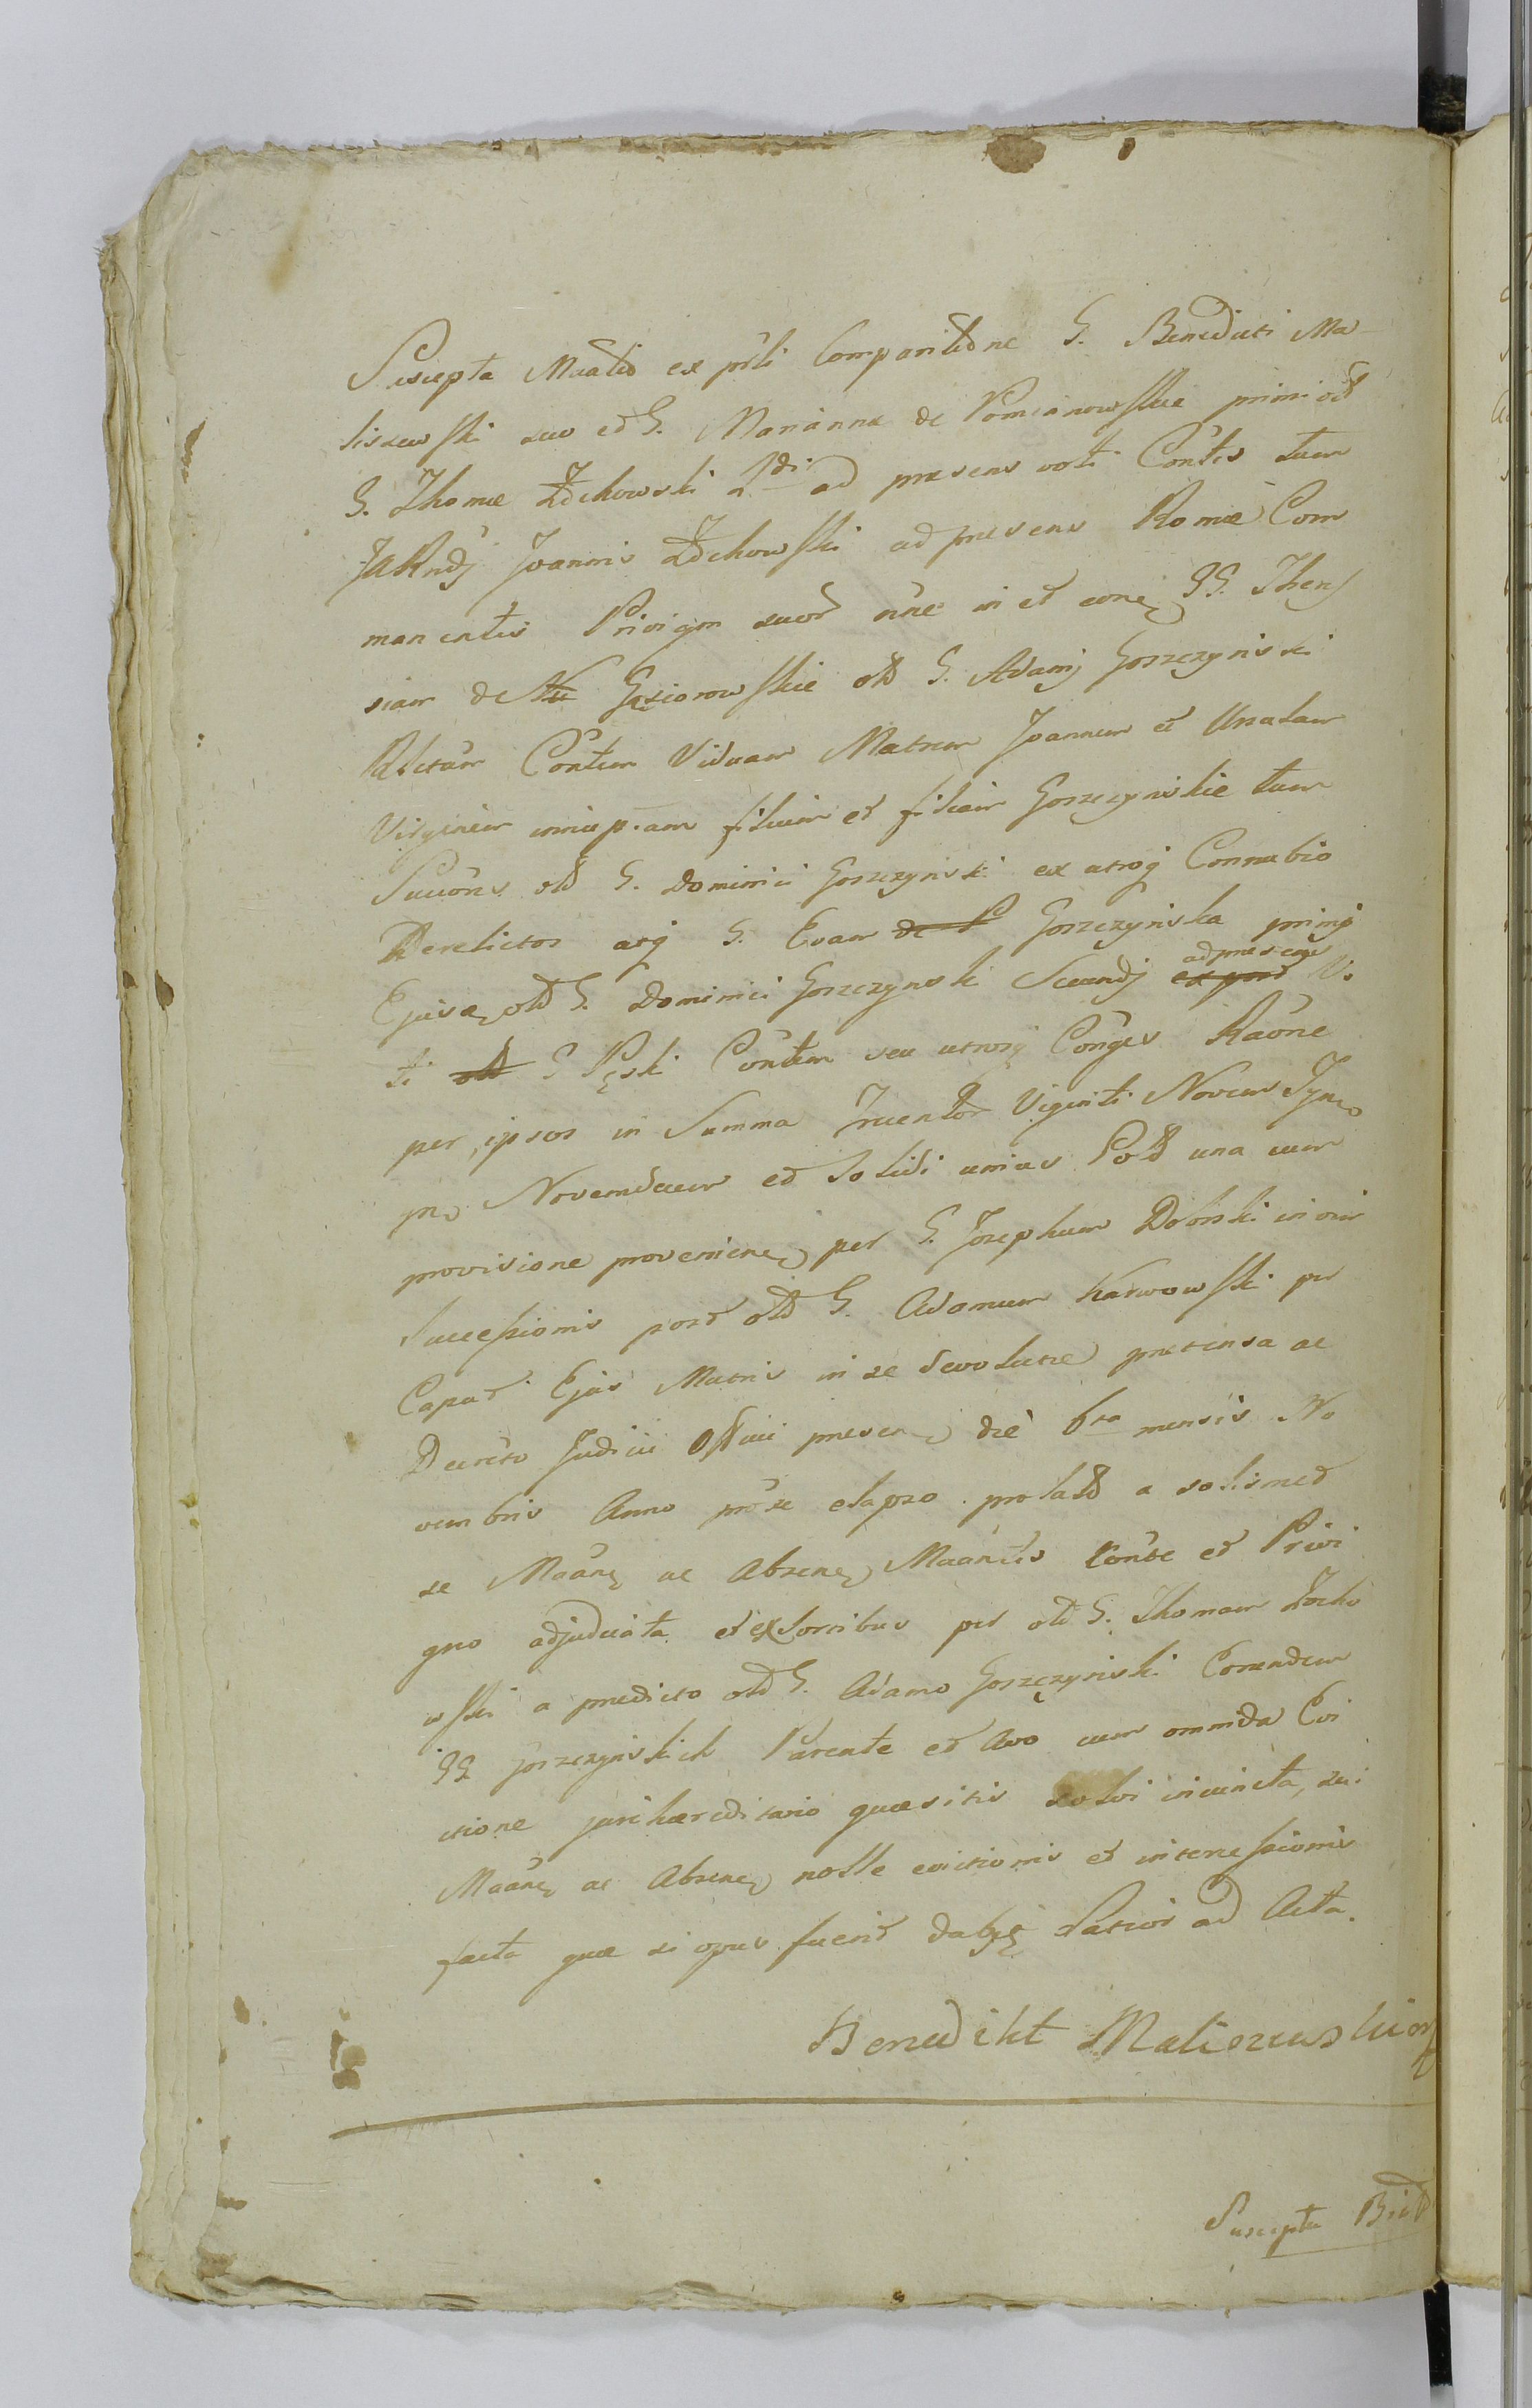 Suscepta Maatio ex prti Comparitione G. Benedicti Ma-
liszewski suo et G. Marianna de Pomianowskie primi olt
G. Thomæ Zochowski 2di ad præsens voti Contis tum
JaRndj Joannis Zochowski ad præsens Romæ Com
manentis Privigni suor nne in et cone GG. There
siam de Gąsiorowskie olt G. Adamj Goszczynski
Relictam Contem Viduam Matrem Joannem et Ursulam
Virginem innuptam filium et filiam Goszczynskie tum
Succōrs olt G. Dominici Goszczynski ex utroq Connubio
Derelictos atq G. Evam de P Goszczynska primj
Ejusq olt G. Dominici Goszczynski Secundj ex post ad præsens Vo
ti olt G Pęski Contem seu utrosq Conges Raōne
per ipsos in Summa Trecentor Viginti Novem Tym
pn Novemdecem et Solidi unius Polt una cum
provisione provenien per G. Josephum Dobski in vim
Successionis post olt G. Adamum Karwowski pr
Caput Ejus Matris in se devolutæ prætensa ac
Decreto Judicii Offici præsen die 6ta mensis No
vembris Anno prōxe elapso prolato a solismet
se Maāne ac Absene Maāntis Conte et Privi
gno adjudicata et ex Sortibus per olt G. Thomam Zocho
wski a prædicto olt G. Adamo Goszczynski Eorumdem
GG Goszczynskich Parente et Avo cum omnida Evi
ctione jure hæreditario quæsitis solvi injuncta, sui
Maāne ac Absene nolle evictionis et intercessionis
facta quæ si opus fuerit dabit Latior ad Acta.
Benedikt Maliszewski mp
Suscepta